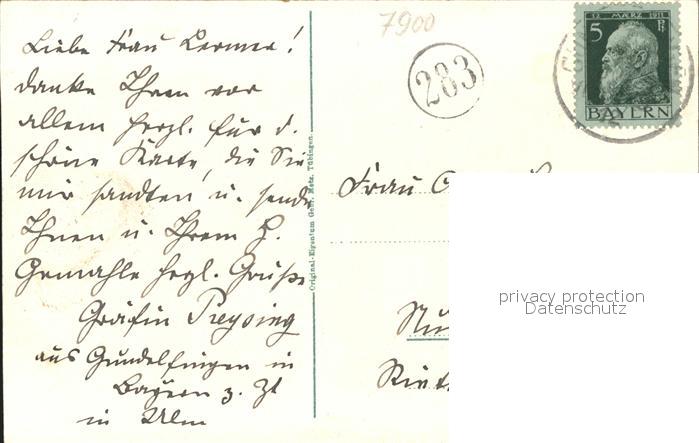 Liebe Frau Lermer!
danke Ihnen vor
allem herzl. für d.
schöne Karte, die Sie
mir sandten u. sende
Ihnen u. Ihrem H.
Gemahle herzl. Grüße
Gräfin Preysing
aus Gundelfingen in
Bayern z. Zt
in Ulm
Original-Eigentum Gebr. Metz, Tübingen.
7900
283
12. MÄRZ 1911
5 Pf
BAYERN
Frau
privacy protection
Datenschutz